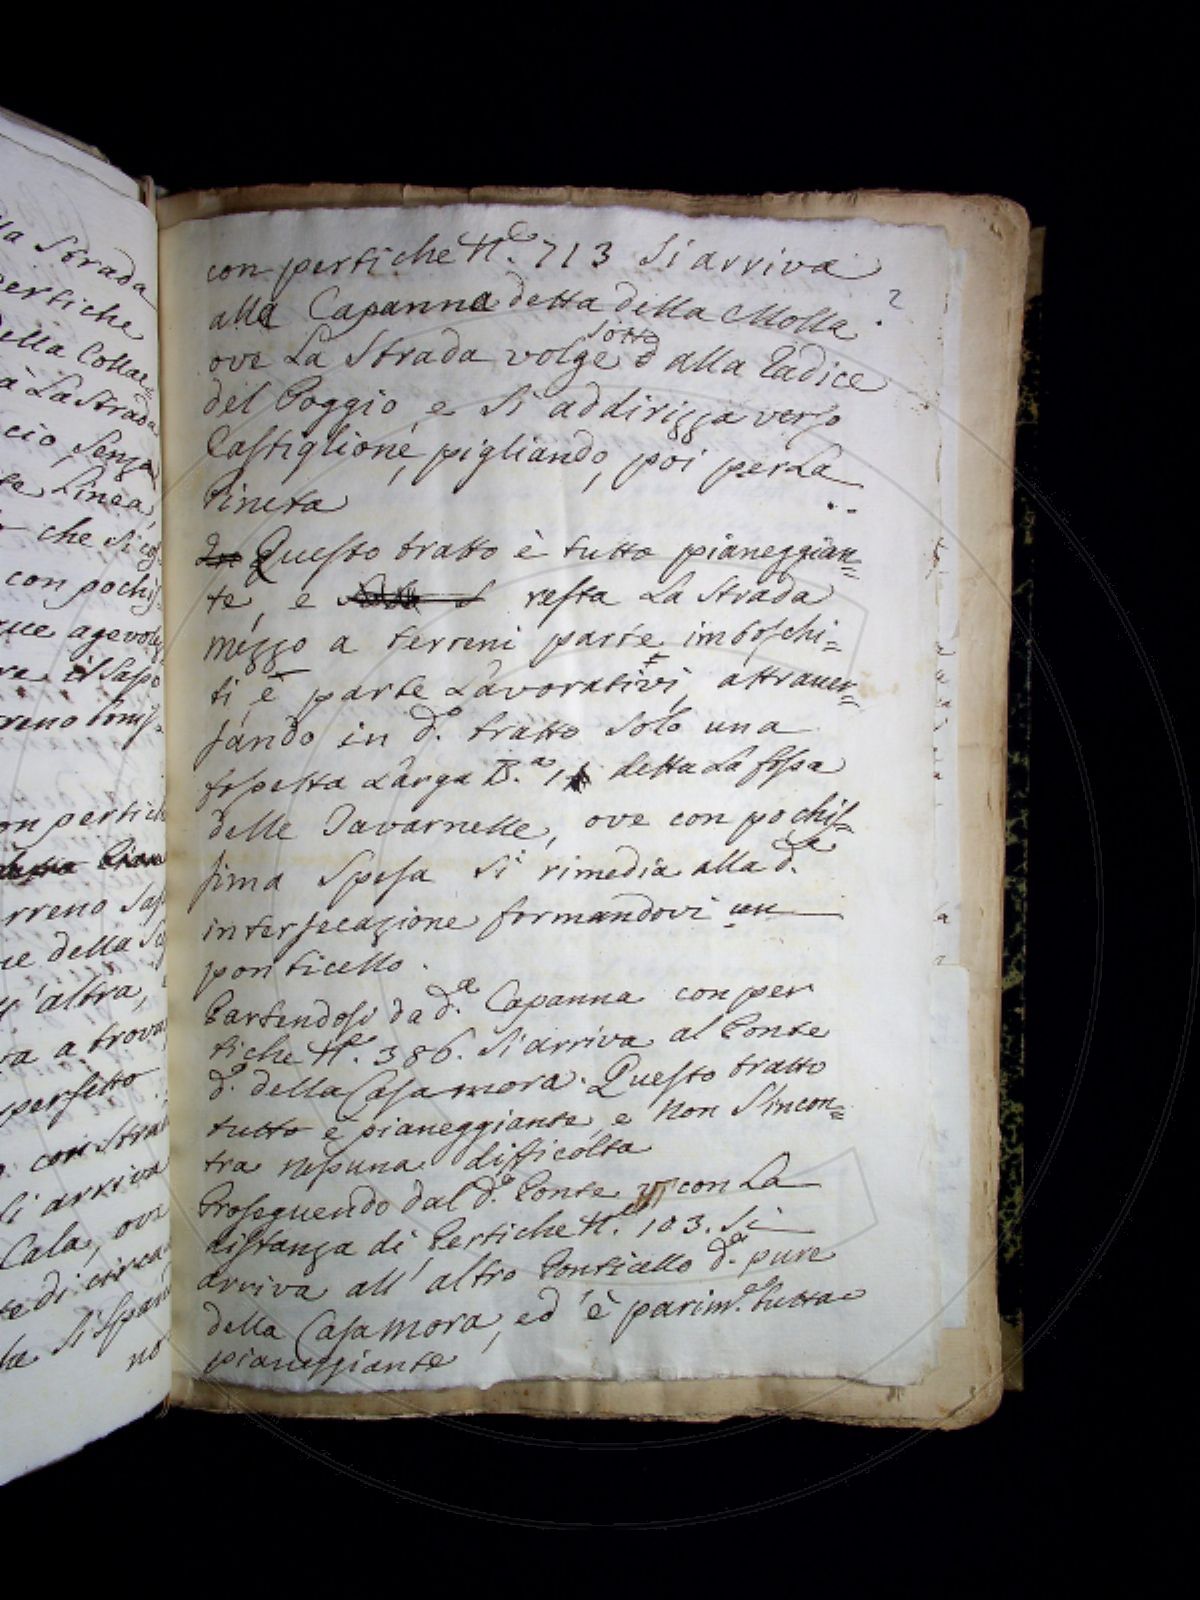 lla Strada
pertiche
della Collac=
à La Strada
cio Senza
te Linea,
che si cos=
con pochis=
que agevolz
re il Sapo
rreno bonis=
on pertiche
rreno Sas
ue della
l'altra,
ta a trova
perfetto
con Stra
Si arriva
Cala, ove
te di circa
he si Span
no
con pertiche N.e 713 Si arriva
alla Capanna detta della Molla
?
sotto
ove La Strada volge alla Radice
del Poggio e Si addirizza verso
Castiglione, pigliando, poi per La
Pineta
Questo tratto è tutto pianeggian=
te, e resta La Strada
mezzo a terreni parte imboschi=
ti è parte Lavorativi, attraver=
sando in d.o tratto Solo una
fossetta Larga B.a 1 detta La fossa
delle Tavarnelle, ove con pochis=
sima Spesa Si rimedia alla d.a
intersecazione formandovi un
ponticello.
Partendosi da d.a Capanna con per
tiche N.e 386. Si arriva al Ponte
d.o della Casa mora. Questo tratto
tutto è pianeggiante, e non S'incon=
tra nessuna difficolta
Proseguendo dal d.o Ponte con La
distanza di Pertiche N.e 103. Si
arriva all'altro Ponticello d.o pure
della Casa mora, ed è parim.e tutta
pianeggiante